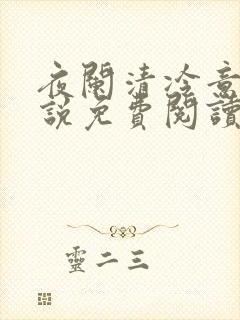 夜闌清冷意
説免費閱讀
靈二三